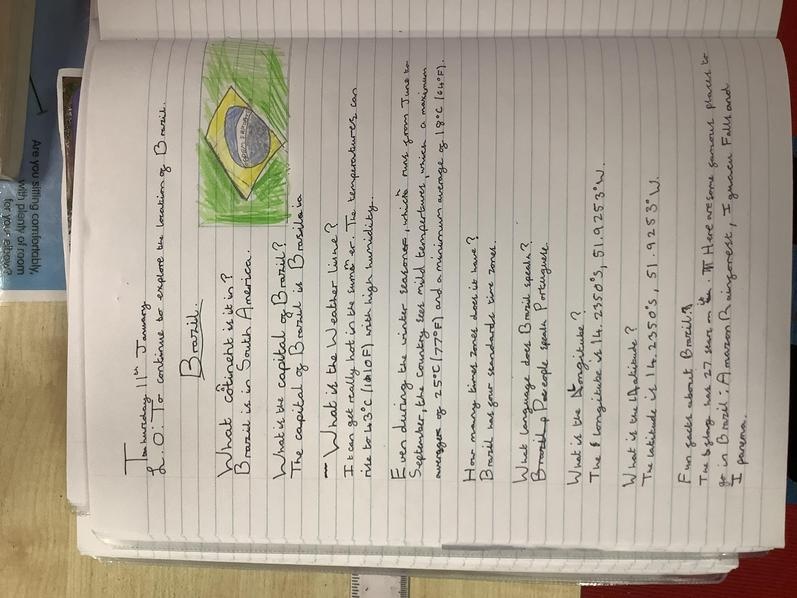 Thursday 11th January
L.O: To continue to explore the location of Brazil.
Brazil.
What continent is it in?
Brazil is in South America.
What is the capital of Brazil?
The capital of Brazil is Brasilia
What is the Weather like?
It can get really hot in the summer. The temperatures can
rise to 43°C (110F) with high humidity.
Even during the winter season, which runs from June to
September, the country sees mild tempertures, which a maximum
average of 25°C (77°F) and a minimum average of 18°C (64°F).
How many times zones does it have?
Brazil has four standards time zones.
What language does Brazil speak?
Brazil people speak Portuguese
What is the longitube?
The longitube is 14.2350°S, 51.9253°W.
What is the latitube?
The latitube is 14.2350°S, 51.9253°W.
Fun facts about Brazil:
The flag has 27 stars on it. Here are some famous places to
go in Brazil: Amazon Rainforest, Iguacu Falls and
Ipanema.
Are you sitting comfortably,
with plenty of room
for your elbow?